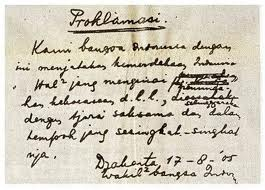 Proklamasi.
Kami bangsa Indonesia dengan
ini menjatakan kemerdekaan Indonesia.
Hal² jang mengenai
kekoeasaan d.l.l.,
dengan tjara saksama dan dalam
tempoh jang sesingkat-singkat
nja.
Djakarta, 17-8-'05
Wakil² bangsa Indon